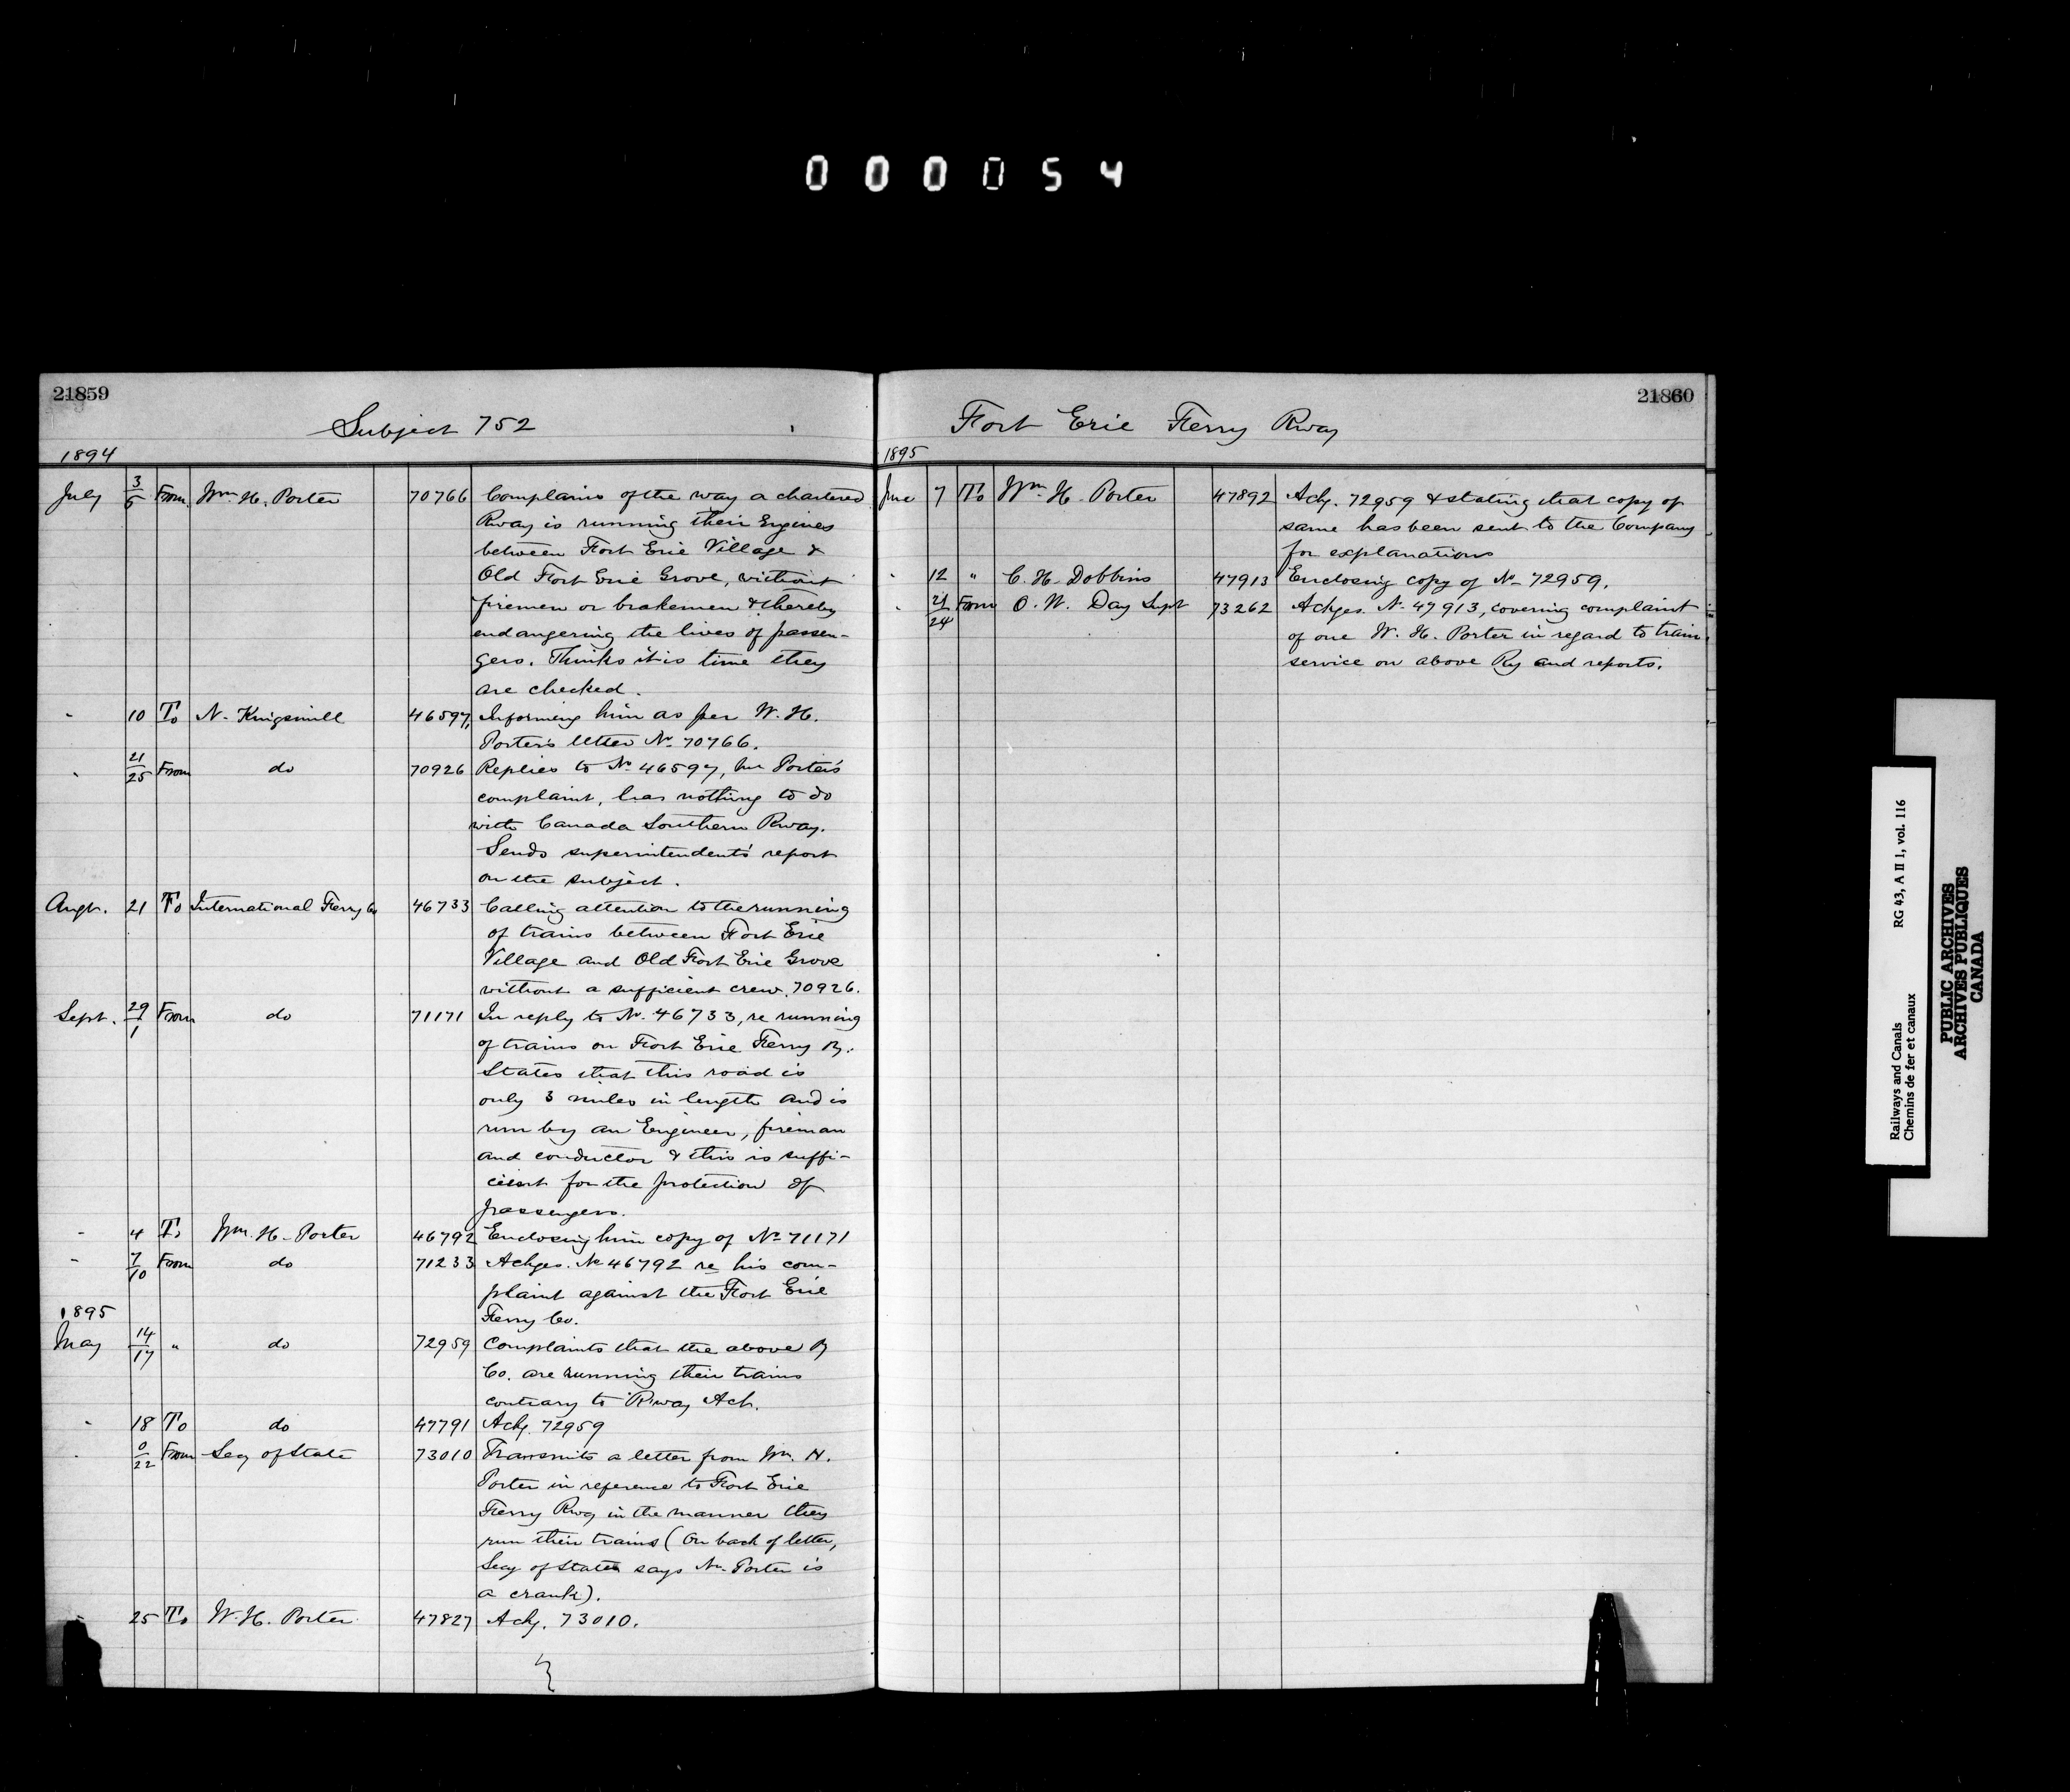 000054
21859
Subject 752
1894
July 3/5 From Wm H. Porter 70766 Complains of the way a chartered
Rway is running their Engines
between Fort Erie Village &
Old Fort Erie Grove, without
firemen or brakemen & thereby
endangering the lives of passen-
gers. Thinks it is time they
are checked.
" 10 To N. Kingsmill 46597 Informing him as per W. H.
Porter's letter No 70766.
" 21/25 From do 70926 Replies to No 46597, Mr Porter's
complaint, has nothing to do
with Canada Southern Rway.
Sends superintendents' report
on the subject.
Augt. 21 To International Ferry Co 46733 Calling attention to the running
of trains between Fort Erie
Village and Old Fort Erie Grove
without a sufficient crew. 70926.
Sept. 29/1 From do 71171 In reply to No. 46733, re running
of trains on Fort Erie Ferry Ry.
States that this road is
only 3 miles in length and is
run by an Engineer, fireman
and conductor & this is suffi-
cient for the protection of
passengers.
" 4 To Wm. H. Porter 46792 Enclosing him copy of No 71171
" 7/10 From do 71233 Ackges. No 46792 re his com-
plaint against the Fort Erie
Ferry Co.
1895
May 14/17 " do 72959 Complaints that the above Ry
Co. are running their trains
contrary to Rway Act.
" 18 To do 47791 Ackg. 72959
" 0/22 From Secy of State 73010 Transmits a letter from Wm. H.
Porter in reference to Fort Erie
Ferry Rwy in the manner they
run their trains (On back of letter,
Secy of State says Mr. Porter is
a crank).
" 25 To W. H. Porter 47827 Ackg. 73010.
21860
Fort Erie Ferry Rway
1895
June 7 To Wm. H. Porter 47892 Ackg. 72959 & stating that copy of
same has been sent to the Company
for explanations
" 12 " C. H. Dobbins 47913 Enclosing copy of No 72959.
" 21/24 From O. W. Day Supt 73262 Ackges. No. 47913, covering complaint
of one W. H. Porter in regard to train
service on above Ry and reports.
Railways and Canals RG 43, A II 1, vol. 116
Chemins de fer et canaux
PUBLIC ARCHIVES
ARCHIVES PUBLIQUES
CANADA